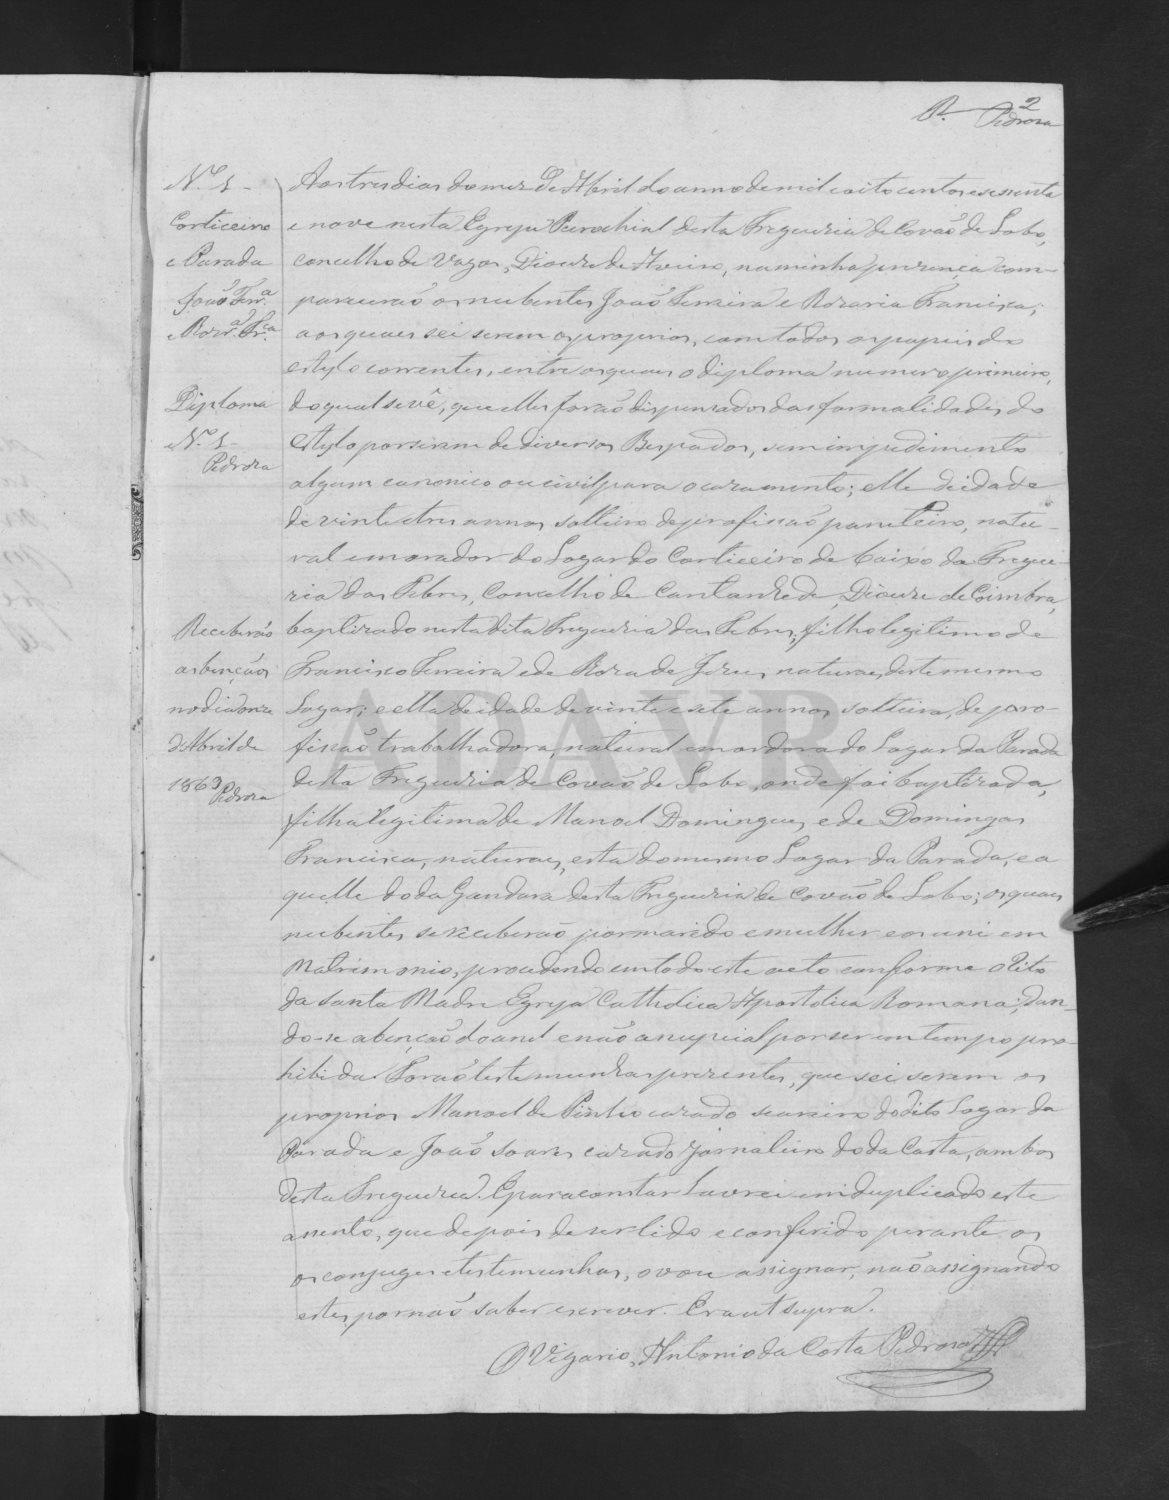 2
R. Pedroza
N.º 1
Corticeiro
e Parada
João Ferr.ª
e Roz.ª Fr.ca
Diploma
N.º 1
Pedroza
Receberão
as bençãos
no dia onze
d'Abril de
1869 Pedroza
Aos tres dias do mez de Abril do anno de mil e oito centos e sessenta
e nove nesta Egreja Parochial desta Freguezia de Covão de Lobo,
concelho de Vagos, Diocese de Aveiro, na minha presença com-
parecerão os nubentes João Ferreira e Rozaria Francisca;
aos quaes sei serem os proprios, com todos os papeis do
estylo correntes, entre os quaes o diploma numero primeiro,
do qual se vê, que elles forão dispensados das formalidades do
estylo por serem de diversos Bispados, sem impedimento
algum canonico ou civil para o cazamento; elle de idade
de vinte e tres annos, solteiro de profissão
natu-
ral e morador do Logar do Corticeiro de baixo da Fregue-
zia das Febres, Concelho de Cantanhede, Diocese de Coimbra,
baptizado nesta dita Freguezia das Febres, filho legitimo de
Francisco Ferreira e de Roza de Jezus, naturaes deste mesmo
Logar; e ella de idade de vinte e sete annos, solteira, de pro-
fissão trabalhadora, natural e moradora do Logar da Parada
desta Freguezia de Covão de Lobo, onde foi baptizada,
filha legitima de Manoel Domingues, e de Domingas
Francisca, naturaes, esta do mesmo Logar da Parada, e a
quelle do da Gandara desta Freguezia de Covão de Lobo; os quaes
nubentes se receberão por marido e mulher e os uni em
Matrimonio, procedendo em todo este acto conforme o Rito
da Santa Madre Egreja Catholica Apostolica Romana; dan-
do-se a benção do anel e não a nupcial por ser em tempo pro-
hibido. Forão testemunhas prezentes, que sei serem os
proprios Manoel de Pinho cazado seareiro do dito Logar da
Parada e João Soares cazado jornaleiro do da Costa, ambos
desta Freguezia. E para constar lavrei em duplicado este
assento, que depois de ser lido e conferido perante os
os conjuges e testemunhas, o vou assignar, não assignando
estes por não saber escrever. Era ut supra.
O Vigario, Antonio da Costa Pedroza
ADAVR